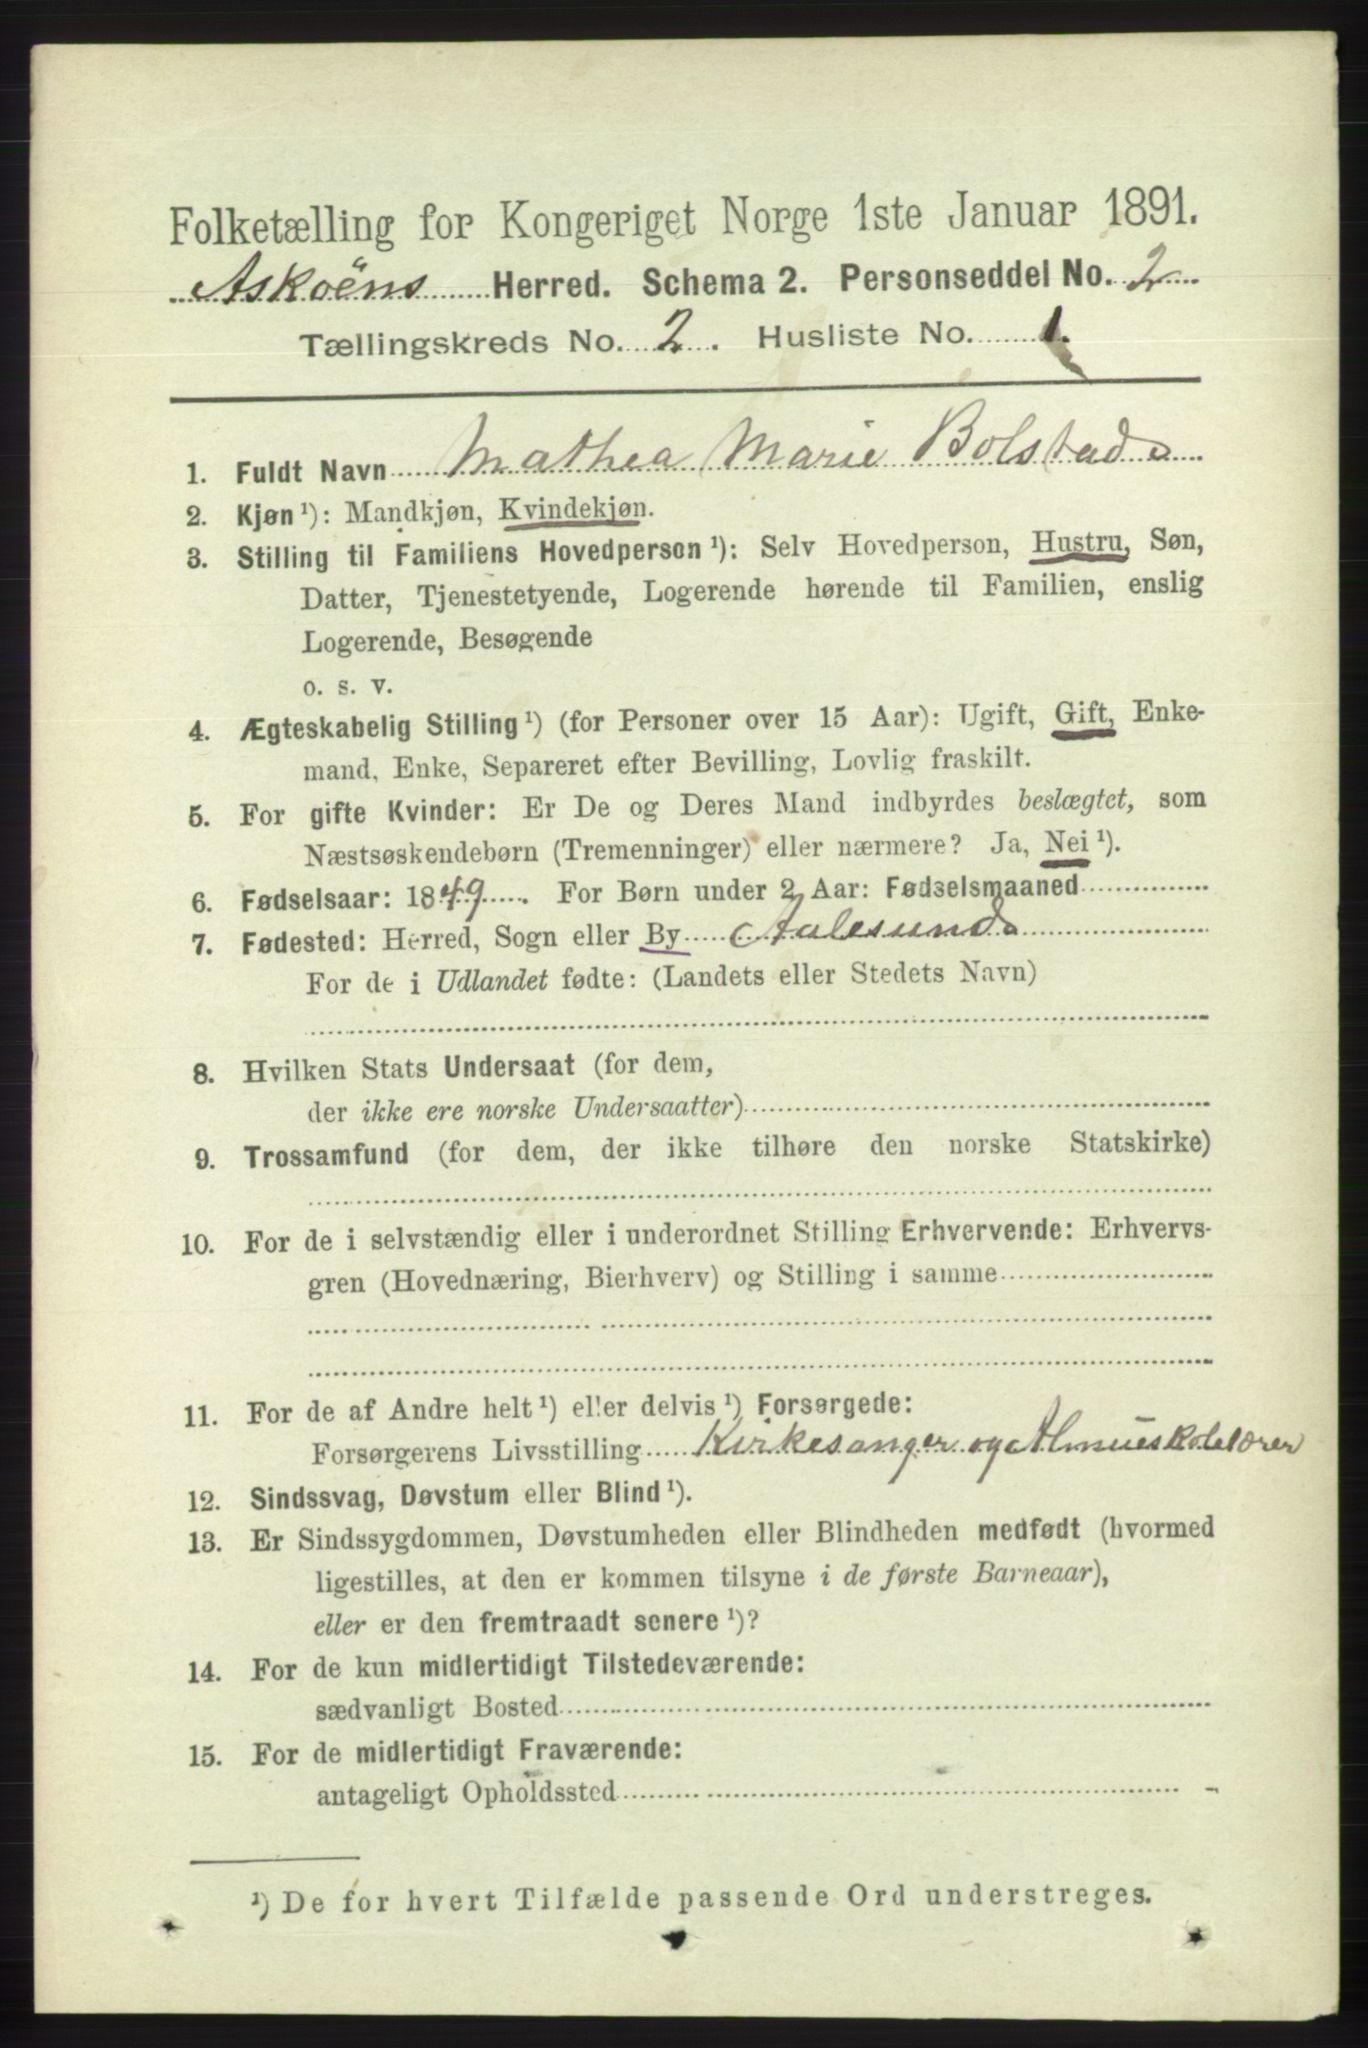 Folketælling for Kongeriget Norge 1ste Januar 1891.
Askoëns Herred. Schema 2. Personseddel No. 2
Tællingskreds No. 2. Husliste No. 1.
1. Fuldt Navn Mathea Marie Bolstad
2. Kjøn ¹): Mandkjøn, Kvindekjøn.
3. Stilling til Familiens Hovedperson ¹): Selv Hovedperson, Hustru, Søn,
Datter, Tjenestetyende, Logerende hørende til Familien, enslig
Logerende, Besøgende
o. s. v.
4. Ægteskabelig Stilling ¹) (for Personer over 15 Aar): Ugift, Gift, Enke-
mand, Enke, Separeret efter Bevilling, Lovlig fraskilt.
5. For gifte Kvinder: Er De og Deres Mand indbyrdes beslægtet, som
Næstsøskendebørn (Tremenninger) eller nærmere? Ja, Nei ¹).
6. Fødselsaar: 1849. For Børn under 2 Aar: Fødselsmaaned
7. Fødested: Herred, Sogn eller By Aalesund
For de i Udlandet fødte: (Landets eller Stedets Navn)
8. Hvilken Stats Undersaat (for dem,
der ikke ere norske Undersaatter)
9. Trossamfund (for dem, der ikke tilhøre den norske Statskirke)
10. For de i selvstændig eller i underordnet Stilling Erhvervende: Erhvervs-
gren (Hovednæring, Bierhverv) og Stilling i samme
11. For de af Andre helt ¹) eller delvis ¹) Forsørgede:
Forsørgerens Livsstilling Kirkesanger og Almueskolelærer
12. Sindssvag, Døvstum eller Blind ¹).
13. Er Sindssygdommen, Døvstumheden eller Blindheden medfødt (hvormed
ligestilles, at den er kommen tilsyne i de første Barneaar),
eller er den fremtraadt senere ¹)?
14. For de kun midlertidigt Tilstedeværende:
sædvanligt Bosted
15. For de midlertidigt Fraværende:
antageligt Opholdssted
¹) De for hvert Tilfælde passende Ord understreges.